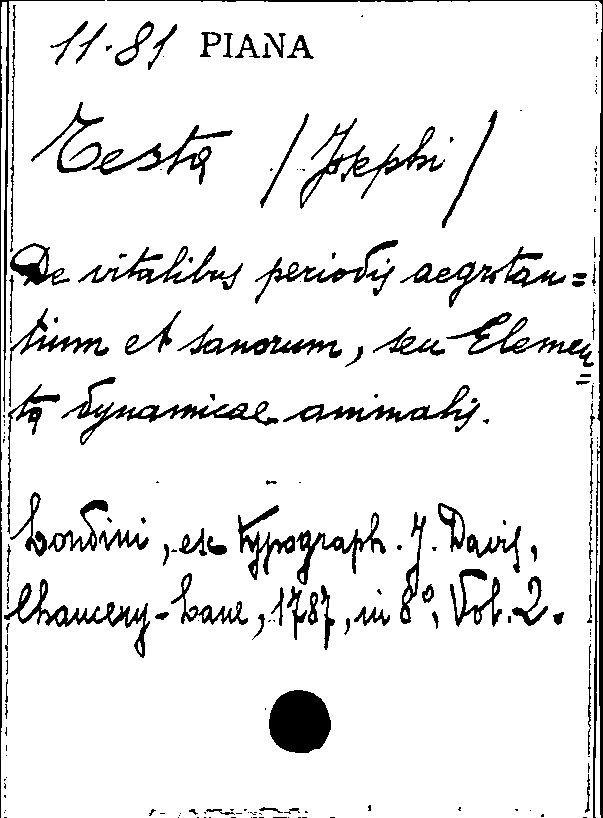 11-81 PIANA
Testa /Josephi/
De vitalibus periodis aegrotan=
tium et sanorum, seu Elemen
=
ta dynamicae animalis.
Londini, ex typograph. J. Davis,
Chancery-Lane, 1787, in 8°, Vol. 2.